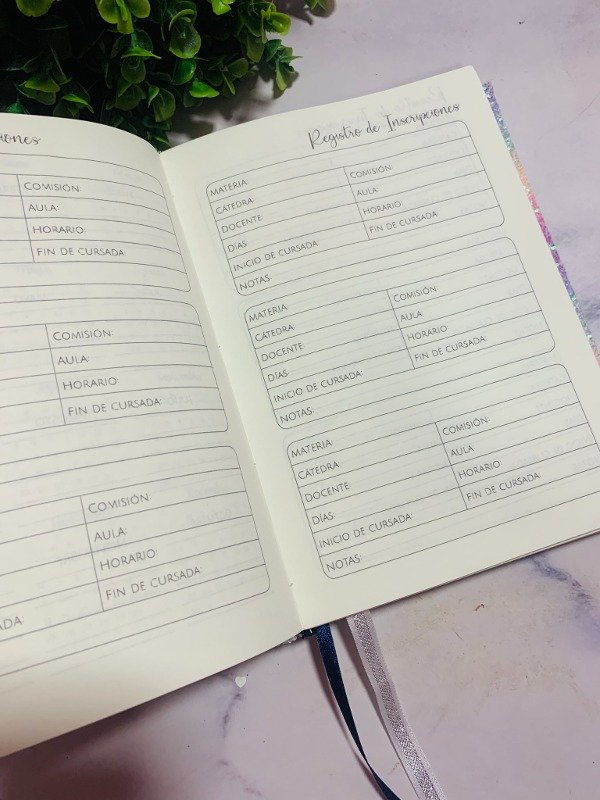 iones
COMISIÓN:
AULA:
HORARIO:
FIN DE CURSADA:
COMISIÓN:
AULA:
HORARIO:
FIN DE CURSADA:
COMISIÓN:
AULA:
HORARIO:
ADA: FIN DE CURSADA:
Registro de Inscripciones
MATERIA:
CÁTEDRA: COMISIÓN:
DOCENTE: AULA:
DÍAS: HORARIO:
INICIO DE CURSADA: FIN DE CURSADA:
NOTAS:
MATERIA:
CÁTEDRA: COMISIÓN:
DOCENTE: AULA:
DÍAS: HORARIO:
INICIO DE CURSADA: FIN DE CURSADA:
NOTAS:
MATERIA:
CÁTEDRA: COMISIÓN:
DOCENTE: AULA:
DÍAS: HORARIO:
INICIO DE CURSADA: FIN DE CURSADA:
NOTAS: